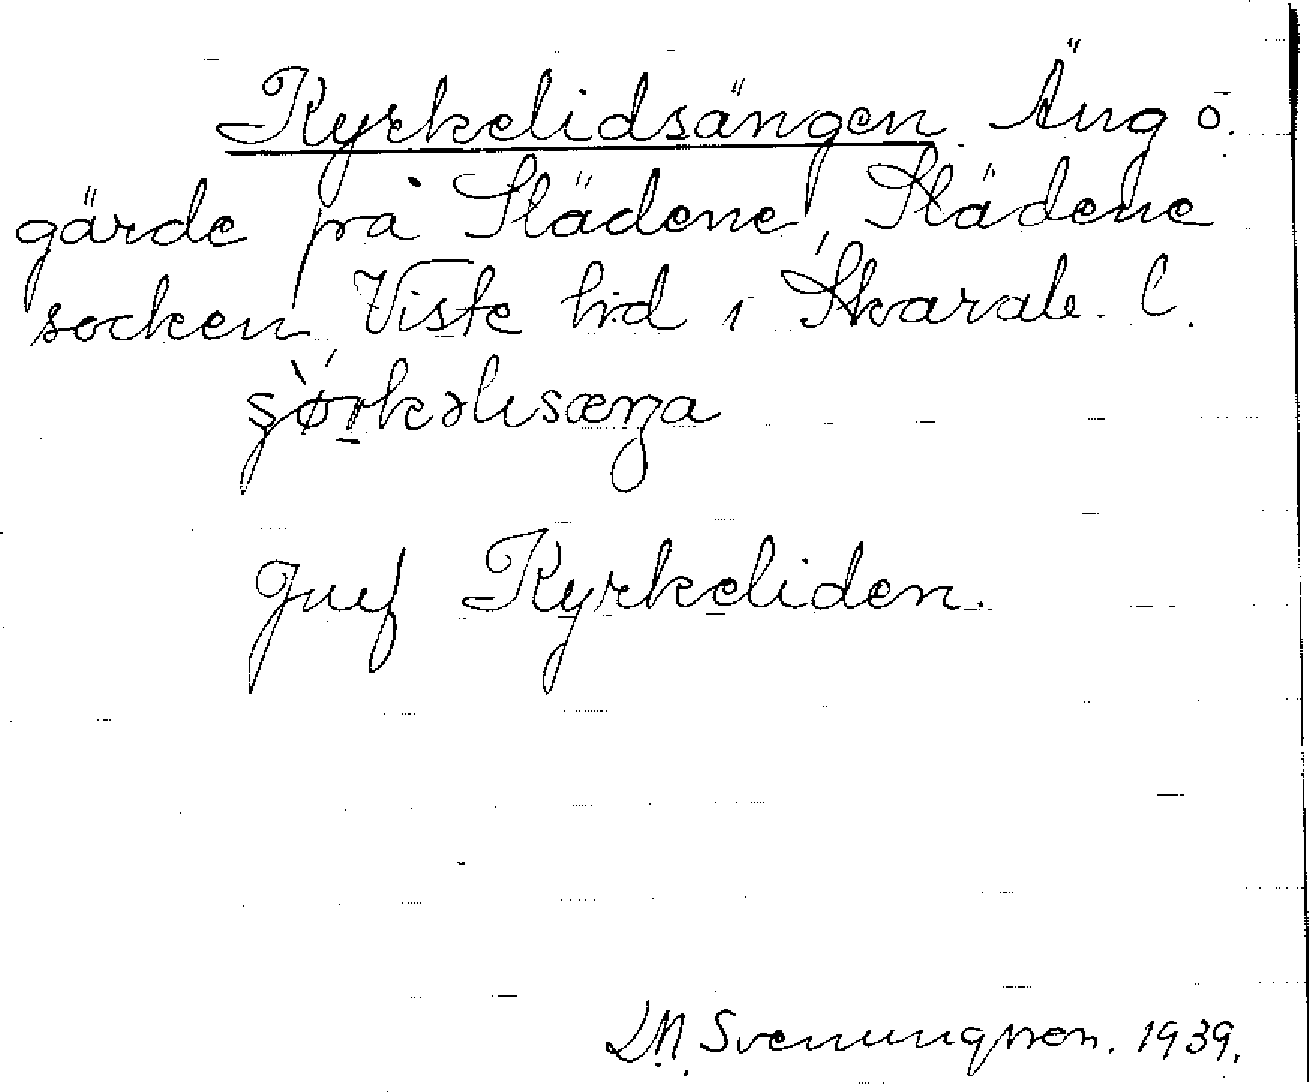 Kyrkelidsängen Äng o.
gärde på Slädene, Slädene
socken, Viste hd i Skarab. l.
Jmf Kyrkeliden.
Svenungsson. 1939.